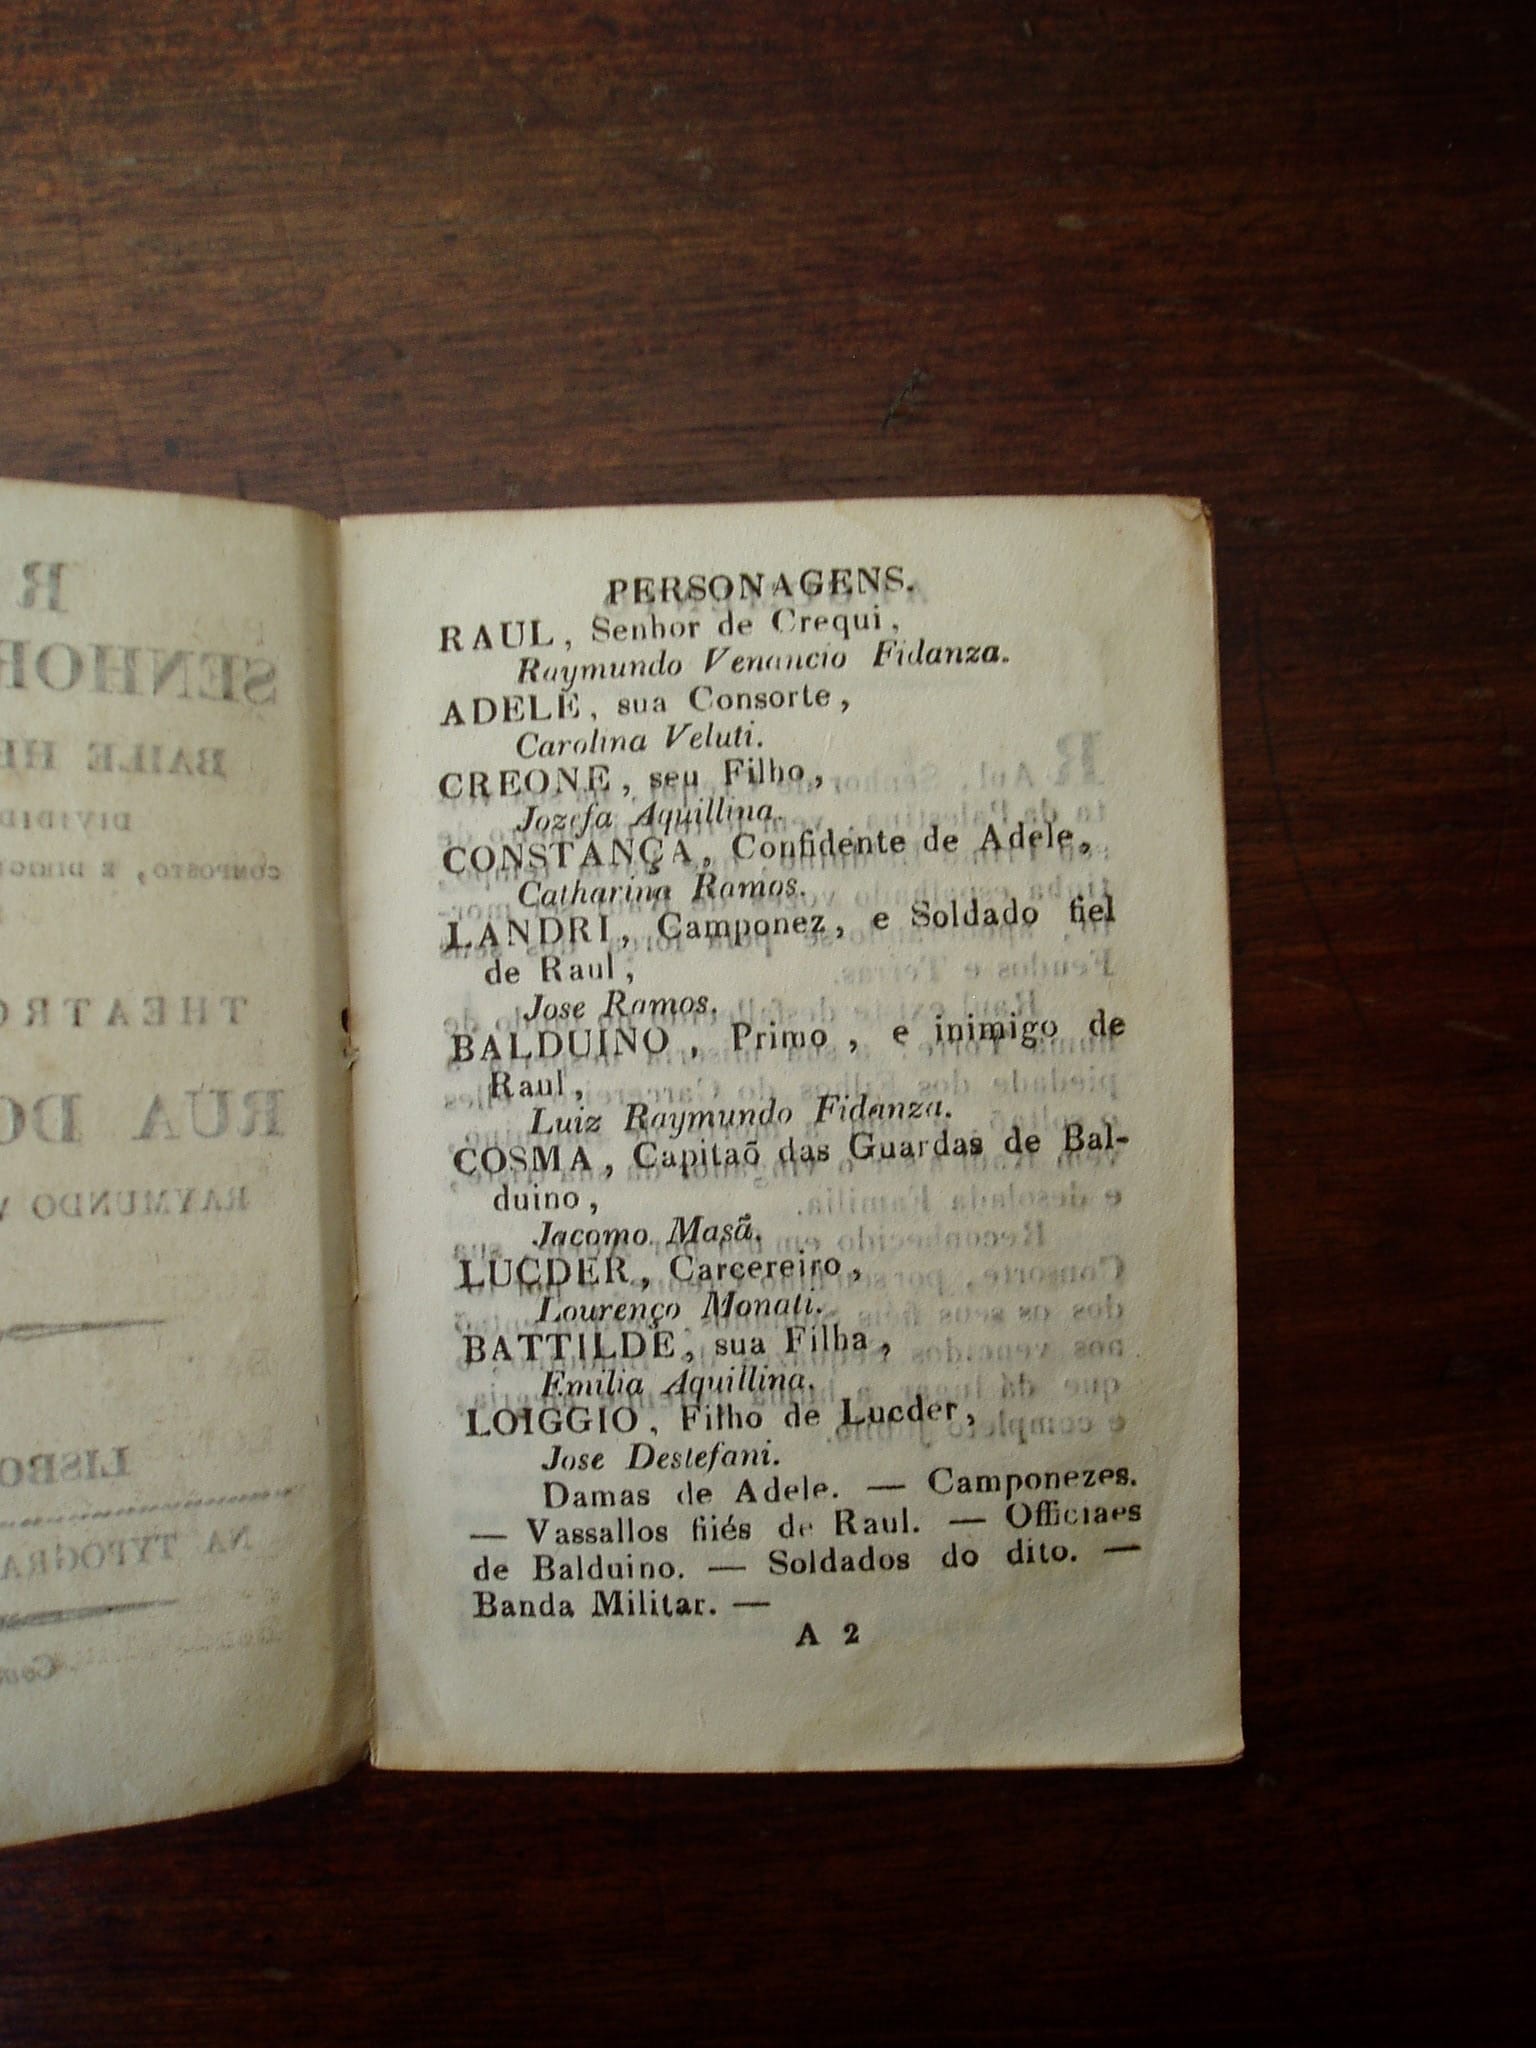 PERSONAGENS.
RAUL, Senhor de Crequi,
Raymundo Venancio Fidanza.
ADELE, sua Consorte,
Carolina Veluti.
CREONE, seu Filho,
Jozefa Aquillina.
CONSTANÇA, Confidente de Adele,
Catharina Ramos.
LANDRI, Camponez, e Soldado fiel
de Raul,
Jose Ramos.
BALDUINO, Primo, e inimigo de
Raul,
Luiz Raymundo Fidanza.
COSMA, Capitaõ das Guardas de Bal-
duino,
Jacomo Masã.
LUCDER, Carcereiro,
Lourenço Monati.
BATTILDE, sua Filha,
Emilia Aquillina.
LOIGGIO, Filho de Lucder,
Jose Destefani.
Damas de Adele. — Camponezes.
— Vassallos fiiés de Raul. — Officiaes
de Balduino. — Soldados do dito. —
Banda Militar. —
A 2